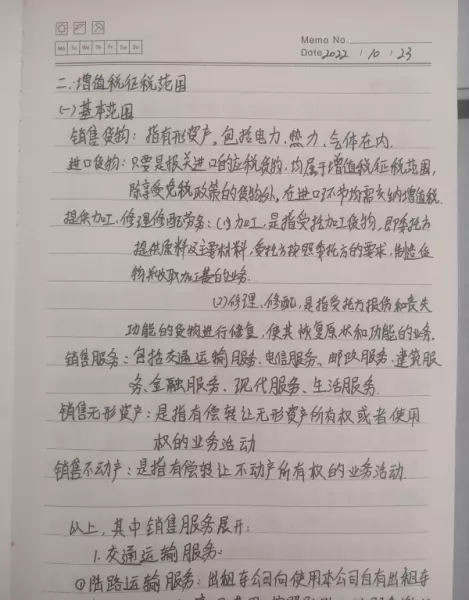 Memo No.
Mo Tu We Th Fr Sa Su
Date 2022 / 10 / 23
二、增值税征税范围
(一)基本范围
销售货物：指有形资产，包括电力、热力、气体在内.
进口货物：只要是报关进口的应税货物，均属于增值税征税范围，
除享受免税政策的货物外，在进口环节均需交纳增值税.
提供加工、修理修配劳务：(1)加工，是指受托加工货物，即委托方
提供原料及主要材料，受托方按照委托方的要求，制造货
物并收取加工费的业务.
(2)修理、修配，是指受托方损伤和丧失
功能的货物进行修复，使其恢复原状和功能的业务.
销售服务：包括交通运输服务、电信服务、邮政服务、建筑服
务、金融服务、现代服务、生活服务.
销售无形资产：是指有偿转让无形资产所有权或者使用
权的业务活动
销售不动产：是指有偿转让不动产所有权的业务活动.
以上，其中销售服务展开：
1.交通运输服务：
①陆路运输服务：出租车公司向使用本公司自有出租车